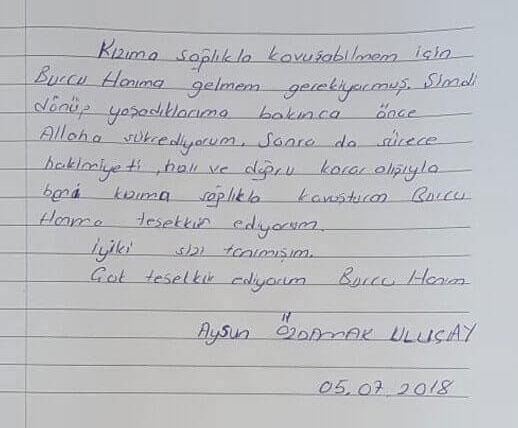 Kızıma sağlıkla kavuşabilmem için
Burcu Hanıma gelmem gerekiyormuş. Şimdi
dönüp yaşadıklarıma bakınca önce
Allaha şükrediyorum. Sonra da sürece
hakimiyeti, hızlı ve doğru karar alışıyla
beni kızıma sağlıkla kavuşturan Burcu
Hanıma teşekkür ediyorum.
İyiki sizi tanımışım.
Çok teşekkür ediyorum Burcu Hanım
Aysun ÖZDAMAK ULUSAY
05.07.2018